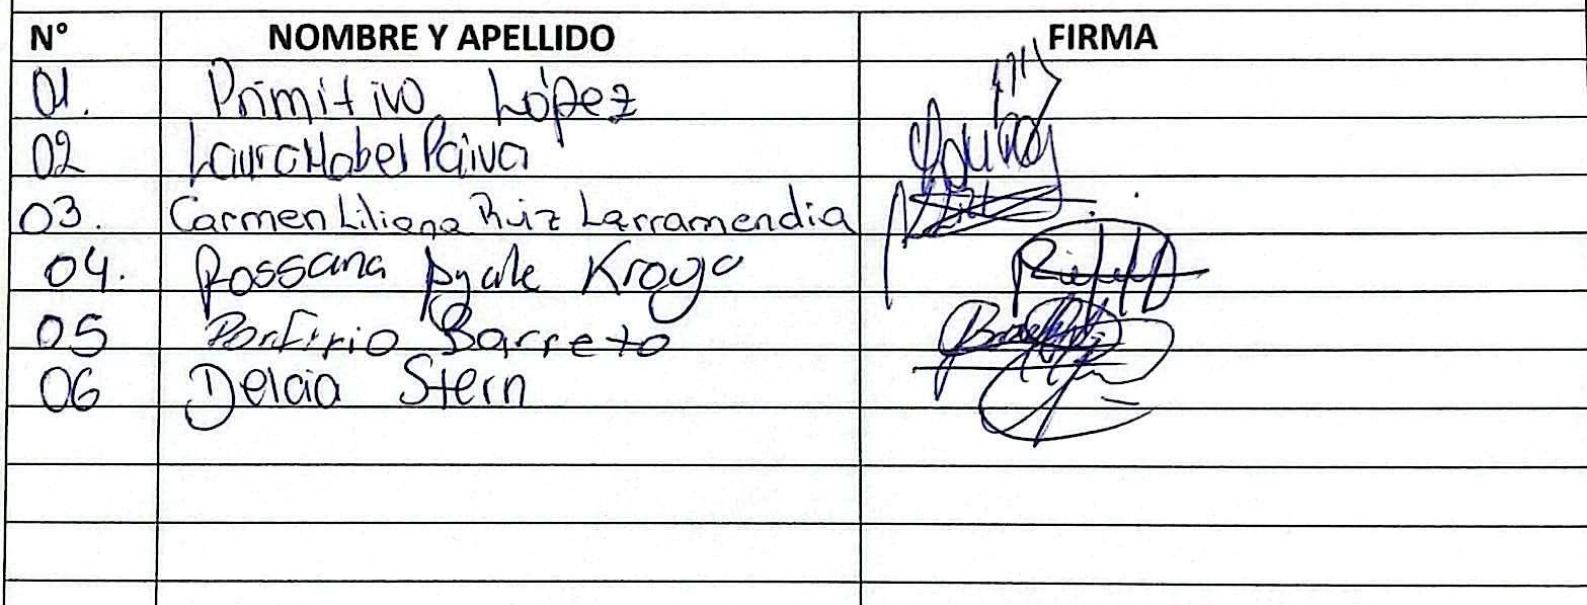 N° NOMBRE Y APELLIDO FIRMA
01. Primitivo López
02 Laura Mabel Paiva
03. Carmen Liliana Ruiz Larramendia
04. Rossana Ayale
05 Porfirio Barreto
06 Delcia Stern